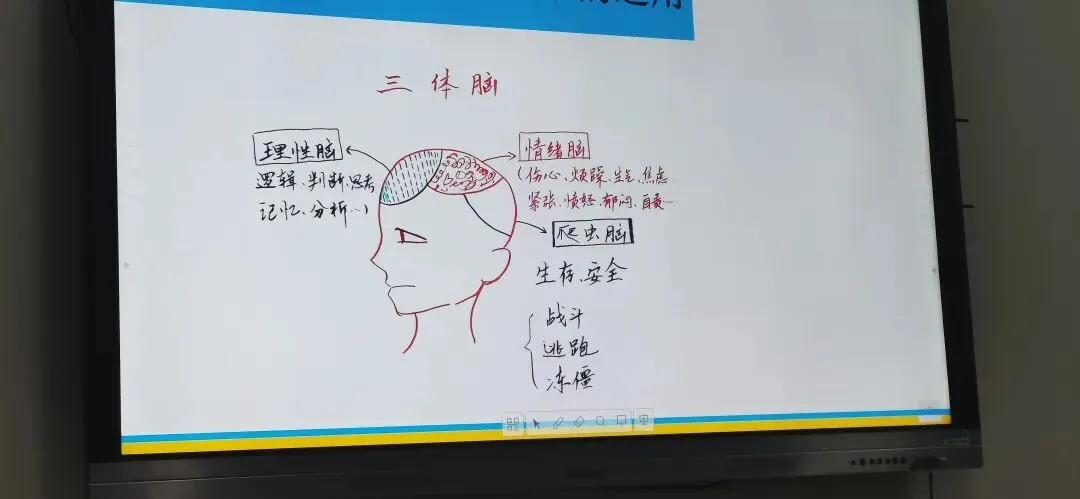 的运用
三体脑
理性脑
逻辑、判断、思考
记忆、分析…)
情绪脑
(伤心、烦躁、生气、焦虑
紧张、愤怒、郁闷、自责…
爬虫脑
生存、安全
战斗
逃跑
冻僵